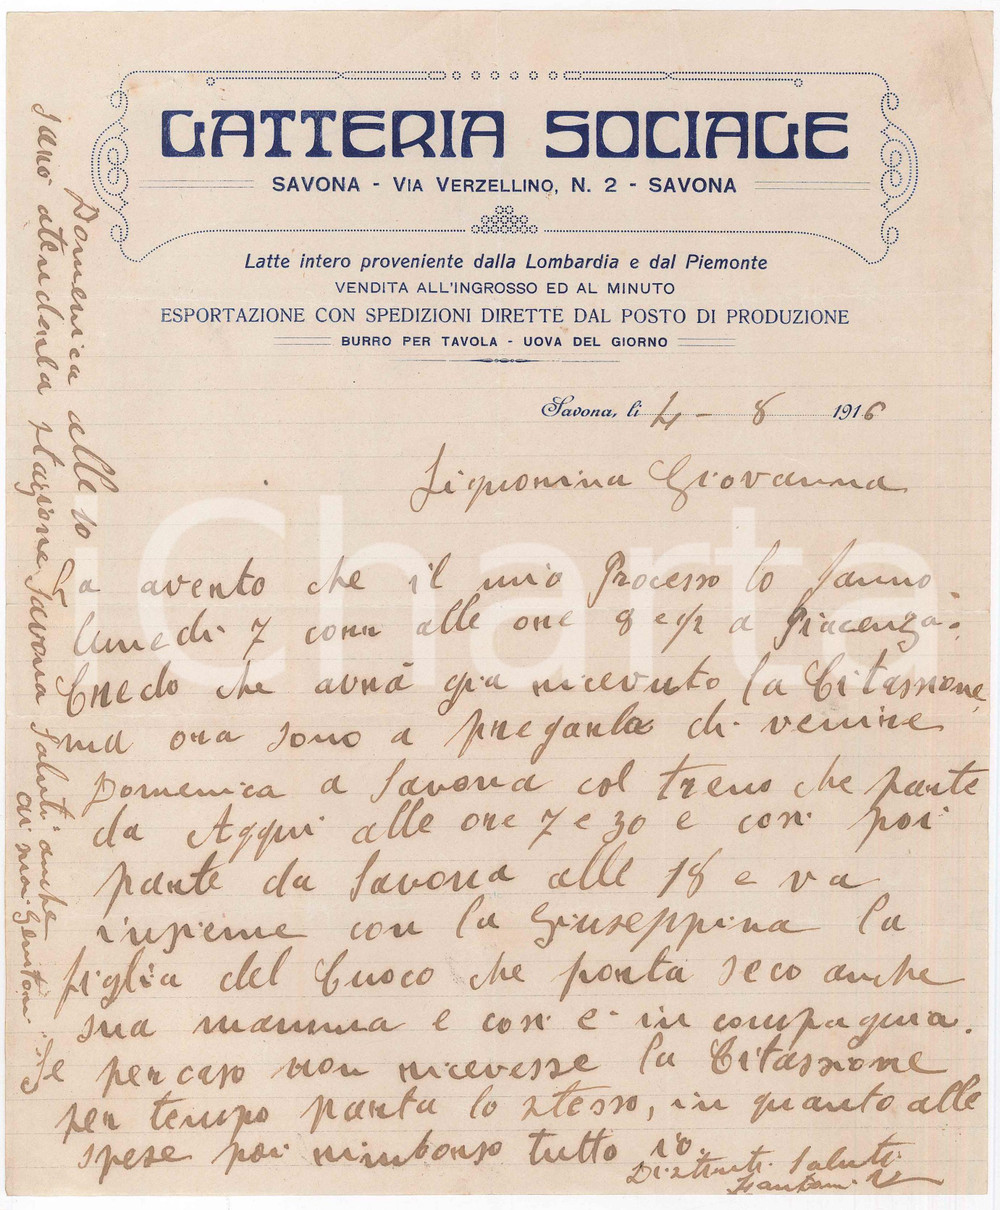 LATTERIA SOCIALE
SAVONA - VIA VERZELLINO, N. 2 - SAVONA
Latte intero proveniente dalla Lombardia e dal Piemonte
VENDITA ALL'INGROSSO ED AL MINUTO
ESPORTAZIONE CON SPEDIZIONI DIRETTE DAL POSTO DI PRODUZIONE
BURRO PER TAVOLA - UOVA DEL GIORNO
Savona, li 4 - 8 1916
Signorina Giovanna
La avento che il mio Processo lo fanno
lunedi 7 corr alle ore 8 e 1/2 a Piacenza.
Credo che avrà gia ricevuto la Citassione
ma ora sono a pregarla di venire
Domenica a Savona col treno che parte
da Aqqui alle ore 7 e 30 e cosi poi
parte da Savona alle 18 e va
insieme con la Giuseppina la
figlia del Cuoco che porta seco anche
sua mamma e cosi è in compagnia.
Se percaso non ricevesse la Citassione
per tempo parta lo stesso, in quanto alle
spese poi rimborso tutto io.
Distinti Saluti
Domenica alle 10
sarò atenderla stazione Savona Saluti anche
ai suoi Genitori
iCharta